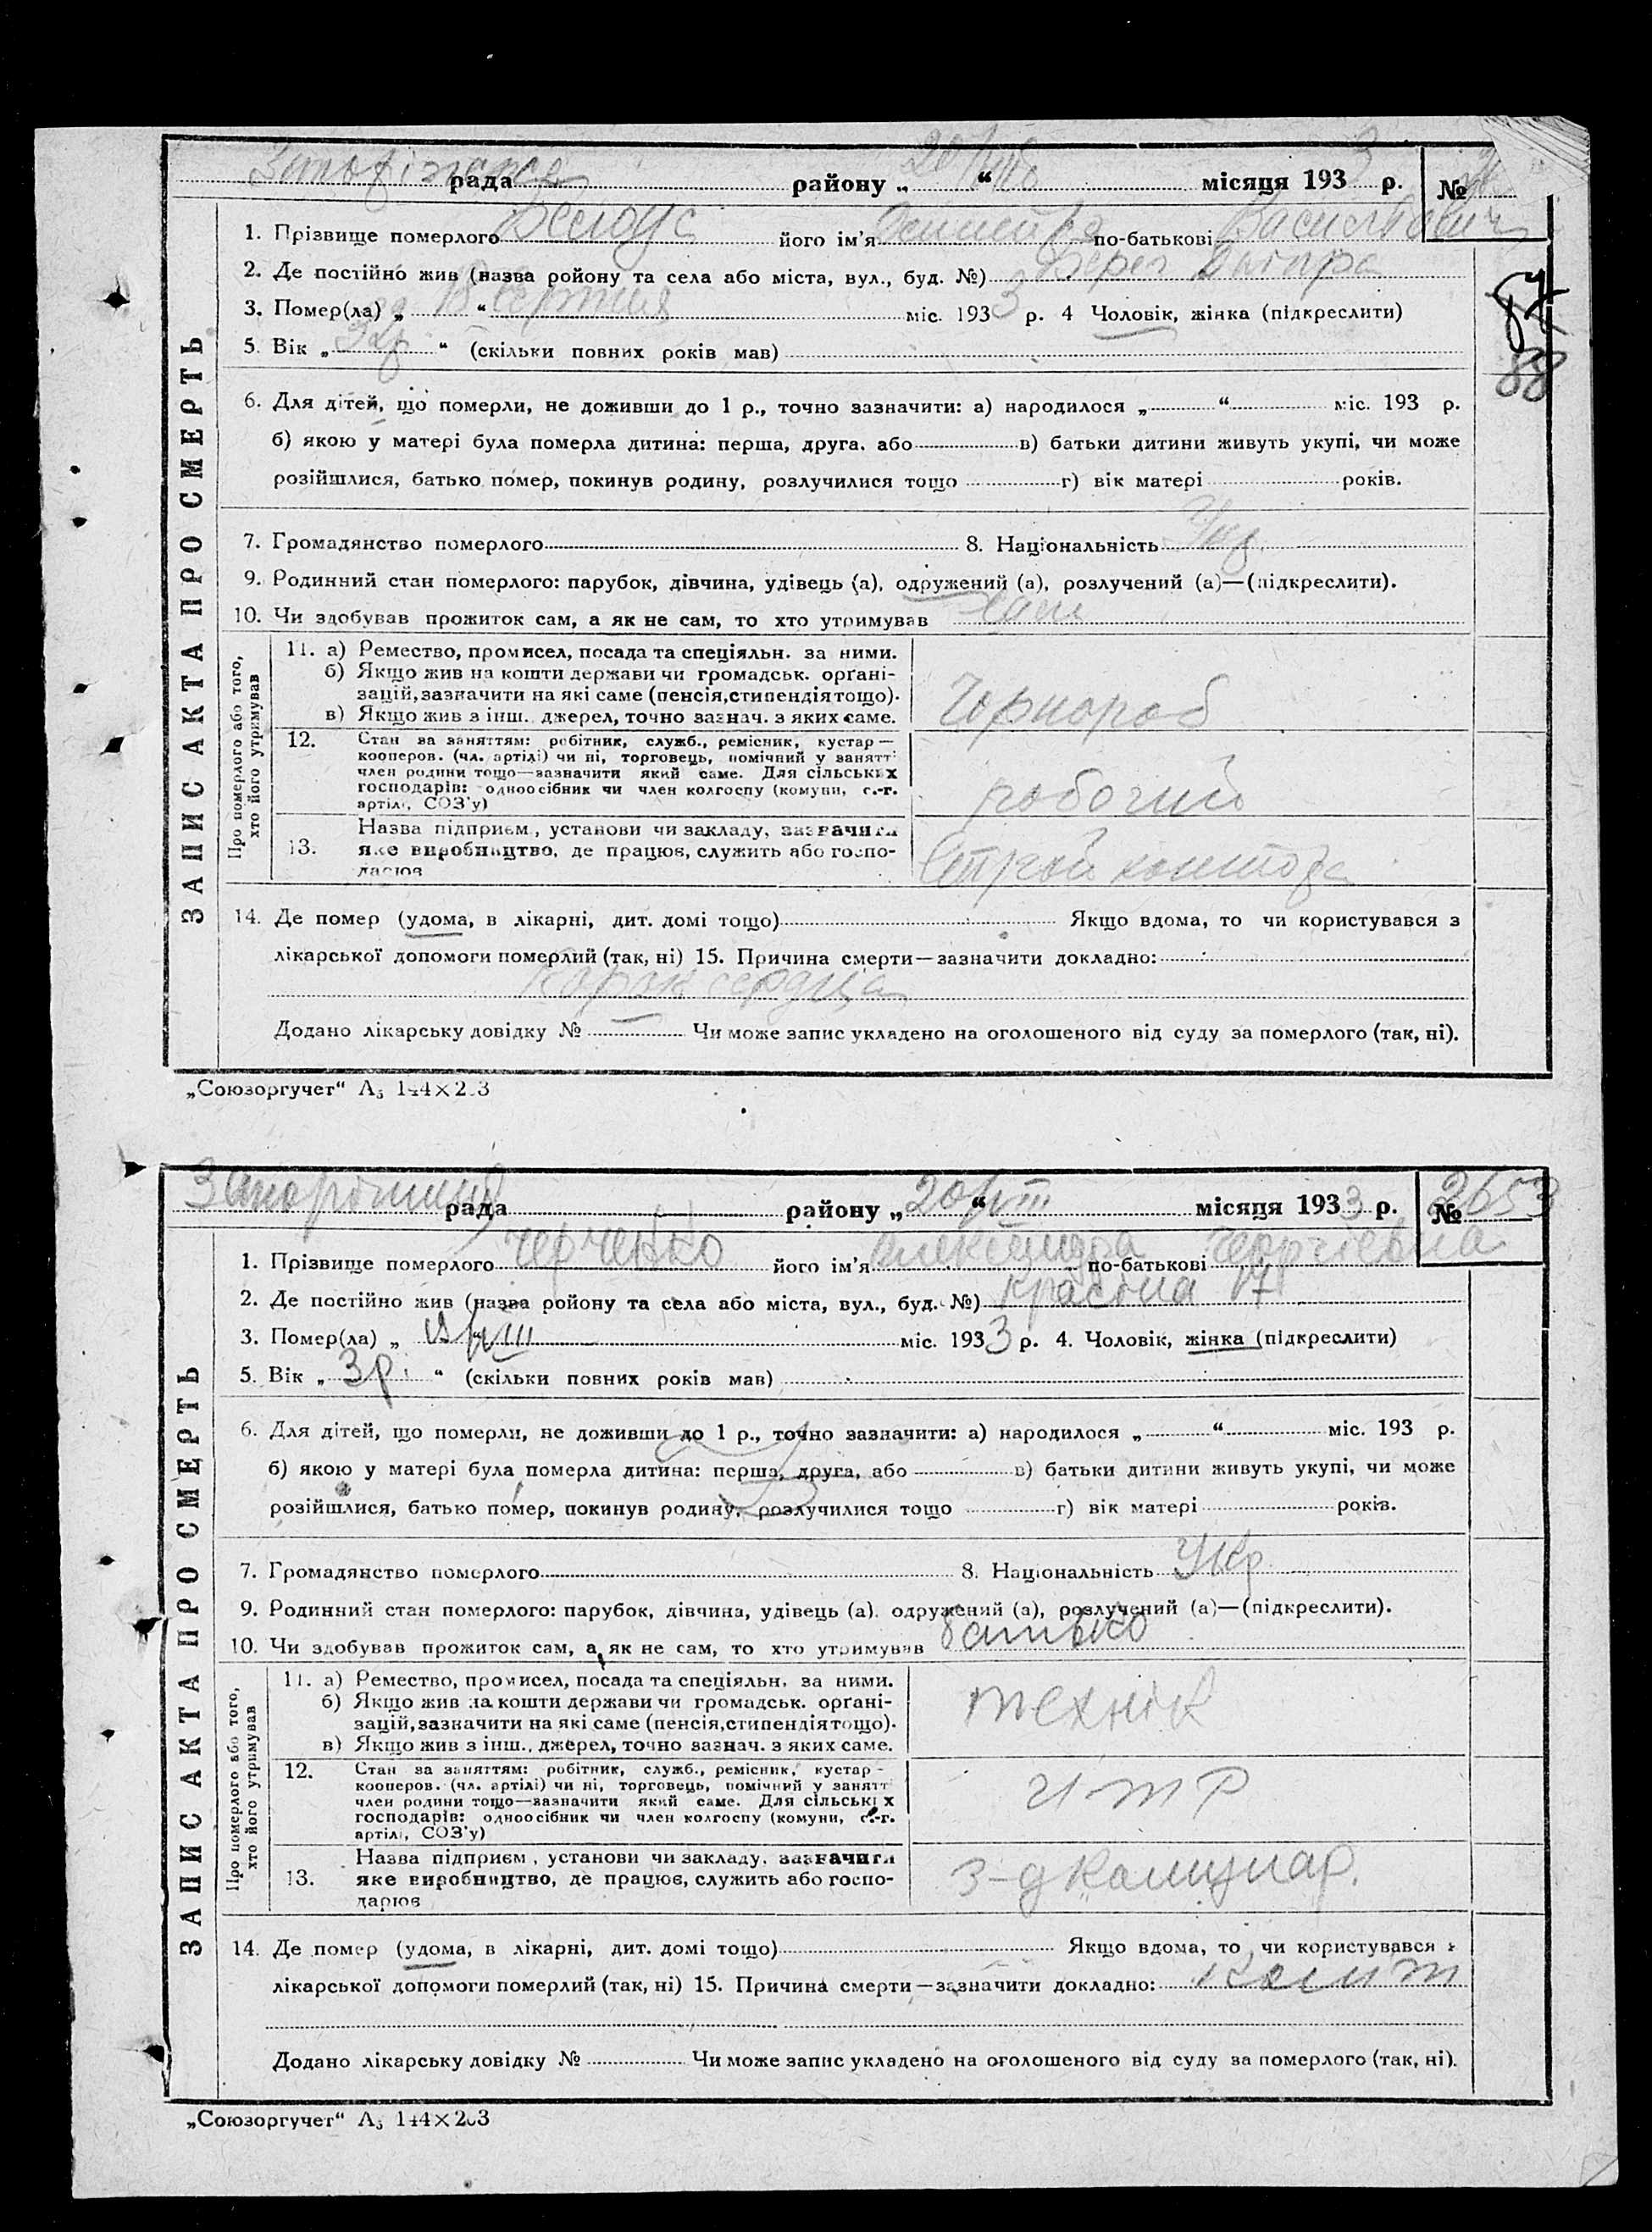 рада району „ 20/VIII “ місяця 1933 р. №
1. Прізвище померлого Белоус його ім’я по-батькові Васильович
2. Де постійно жив (назва ройону та села або міста, вул., буд. №) Берег Дніпра
3. Помер(ла) „ “ серпня міс. 1933 р. 4 Чоловік, жінка (підкреслити)
5. Вік „ “ (скільки повних років мав)
6. Для дітей, що померли, не доживши до 1 р., точно зазначити: а) народилося „ “ міс. 193 р.
б) якою у матері була померла дитина: перша, друга, або в) батьки дитини живуть укупі, чи може
розійшлися, батько помер, покинув родину, розлучилися тощо г) вік матері років.
7. Громадянство померлого 8. Національність Укр.
9. Родинний стан померлого: парубок, дівчина, удівець (а), одружений (а), розлучений (а)—(підкреслити).
10. Чи здобував прожиток сам, а як не сам, то хто утримував сам
ЗАПИС АКТА ПРО СМЕРТЬ
Про померлого або того,
хто його утримував
11. а) Ремество, промисел, посада та спеціяльн. за ними.
б) Якщо жив на кошти держави чи громадськ. орґані-
зацій, зазначити на які саме (пенсія, стипендія тощо).
в) Якщо жив з інш. джерел, точно зазнач. з яких саме.
Чорнороб
12. Стан за заняттям: робітник, служб., ремісник, кустар —
кооперов. (чл. артілі) чи ні, торговець, помічний у занятт
член родини тощо—зазначити який саме. Для сільських
господарів: одноосібник чи член колгоспу (комуни, с.-г.
артілі, СОЗ’у)
робочий
13. Назва підприєм., установи чи закладу, зазначити
яке виробництво, де працює, служить або госпо-
дарює
Строй контора
14. Де помер (удома, в лікарні, дит. домі тощо) Якщо вдома, то чи користувався з
лікарської допомоги померлий (так, ні) 15. Причина смерти—зазначити докладно:
сердца
Додано лікарську довідку № Чи може запис укладено на оголошеного від суду за померлого (так, ні).
„Союзоргучет“ А₅ 144×203
87
88
рада району „ 20/VIII “ місяця 1933 р. № 2653
1. Прізвище померлого Черченко його ім’я Александра по-батькові Георгіевна
2. Де постійно жив (назва ройону та села або міста, вул., буд. №) Красіна 17
3. Помер(ла) „ /VIII міс. 1933 р. 4. Чоловік, жінка (підкреслити)
5. Вік „ 3 р. “ (скільки повних років мав)
6. Для дітей, що померли, не доживши до 1 р., точно зазначити: а) народилося „ “ міс. 193 р.
б) якою у матері була померла дитина: перша, друга, або в) батьки дитини живуть укупі, чи може
розійшлися, батько помер, покинув родину, розлучилися тощо г) вік матері років.
7. Громадянство померлого 8. Національність Укр
9. Родинний стан померлого: парубок, дівчина, удівець (а), одружений (а), розлучений (а)—(підкреслити).
10. Чи здобував прожиток сам, а як не сам, то хто утримував батько
ЗАПИС АКТА ПРО СМЕРТЬ
Про померлого або того,
хто його утримував
11. а) Ремество, промисел, посада та спеціяльн. за ними.
б) Якщо жив на кошти держави чи громадськ. орґані-
зацій, зазначити на які саме (пенсія, стипендія тощо).
в) Якщо жив з інш., джерел, точно зазнач. з яких саме.
технік
12. Стан за заняттям: робітник, служб., ремісник, кустар-
кооперов. (чл. артілі) чи ні, торговець, помічний у занятт
член родини тощо—зазначити який саме. Для сільських
господарів: одноосібник чи член колгоспу (комуни, с.-г.
артілі, СОЗ’у)
ИТР
13. Назва підприєм., установи чи закладу, зазначити
яке виробництво, де працює, служить або госпо-
дарює
З-д Комунар.
14. Де помер (удома, в лікарні, дит. домі тощо) Якщо вдома, то чи користувався з
лікарської допомоги померлий (так, ні) 15. Причина смерти—зазначити докладно: Коліт
Додано лікарську довідку № Чи може запис укладено на оголошеного від суду за померлого (так, ні).
„Союзоргучет“ А₅ 144×203